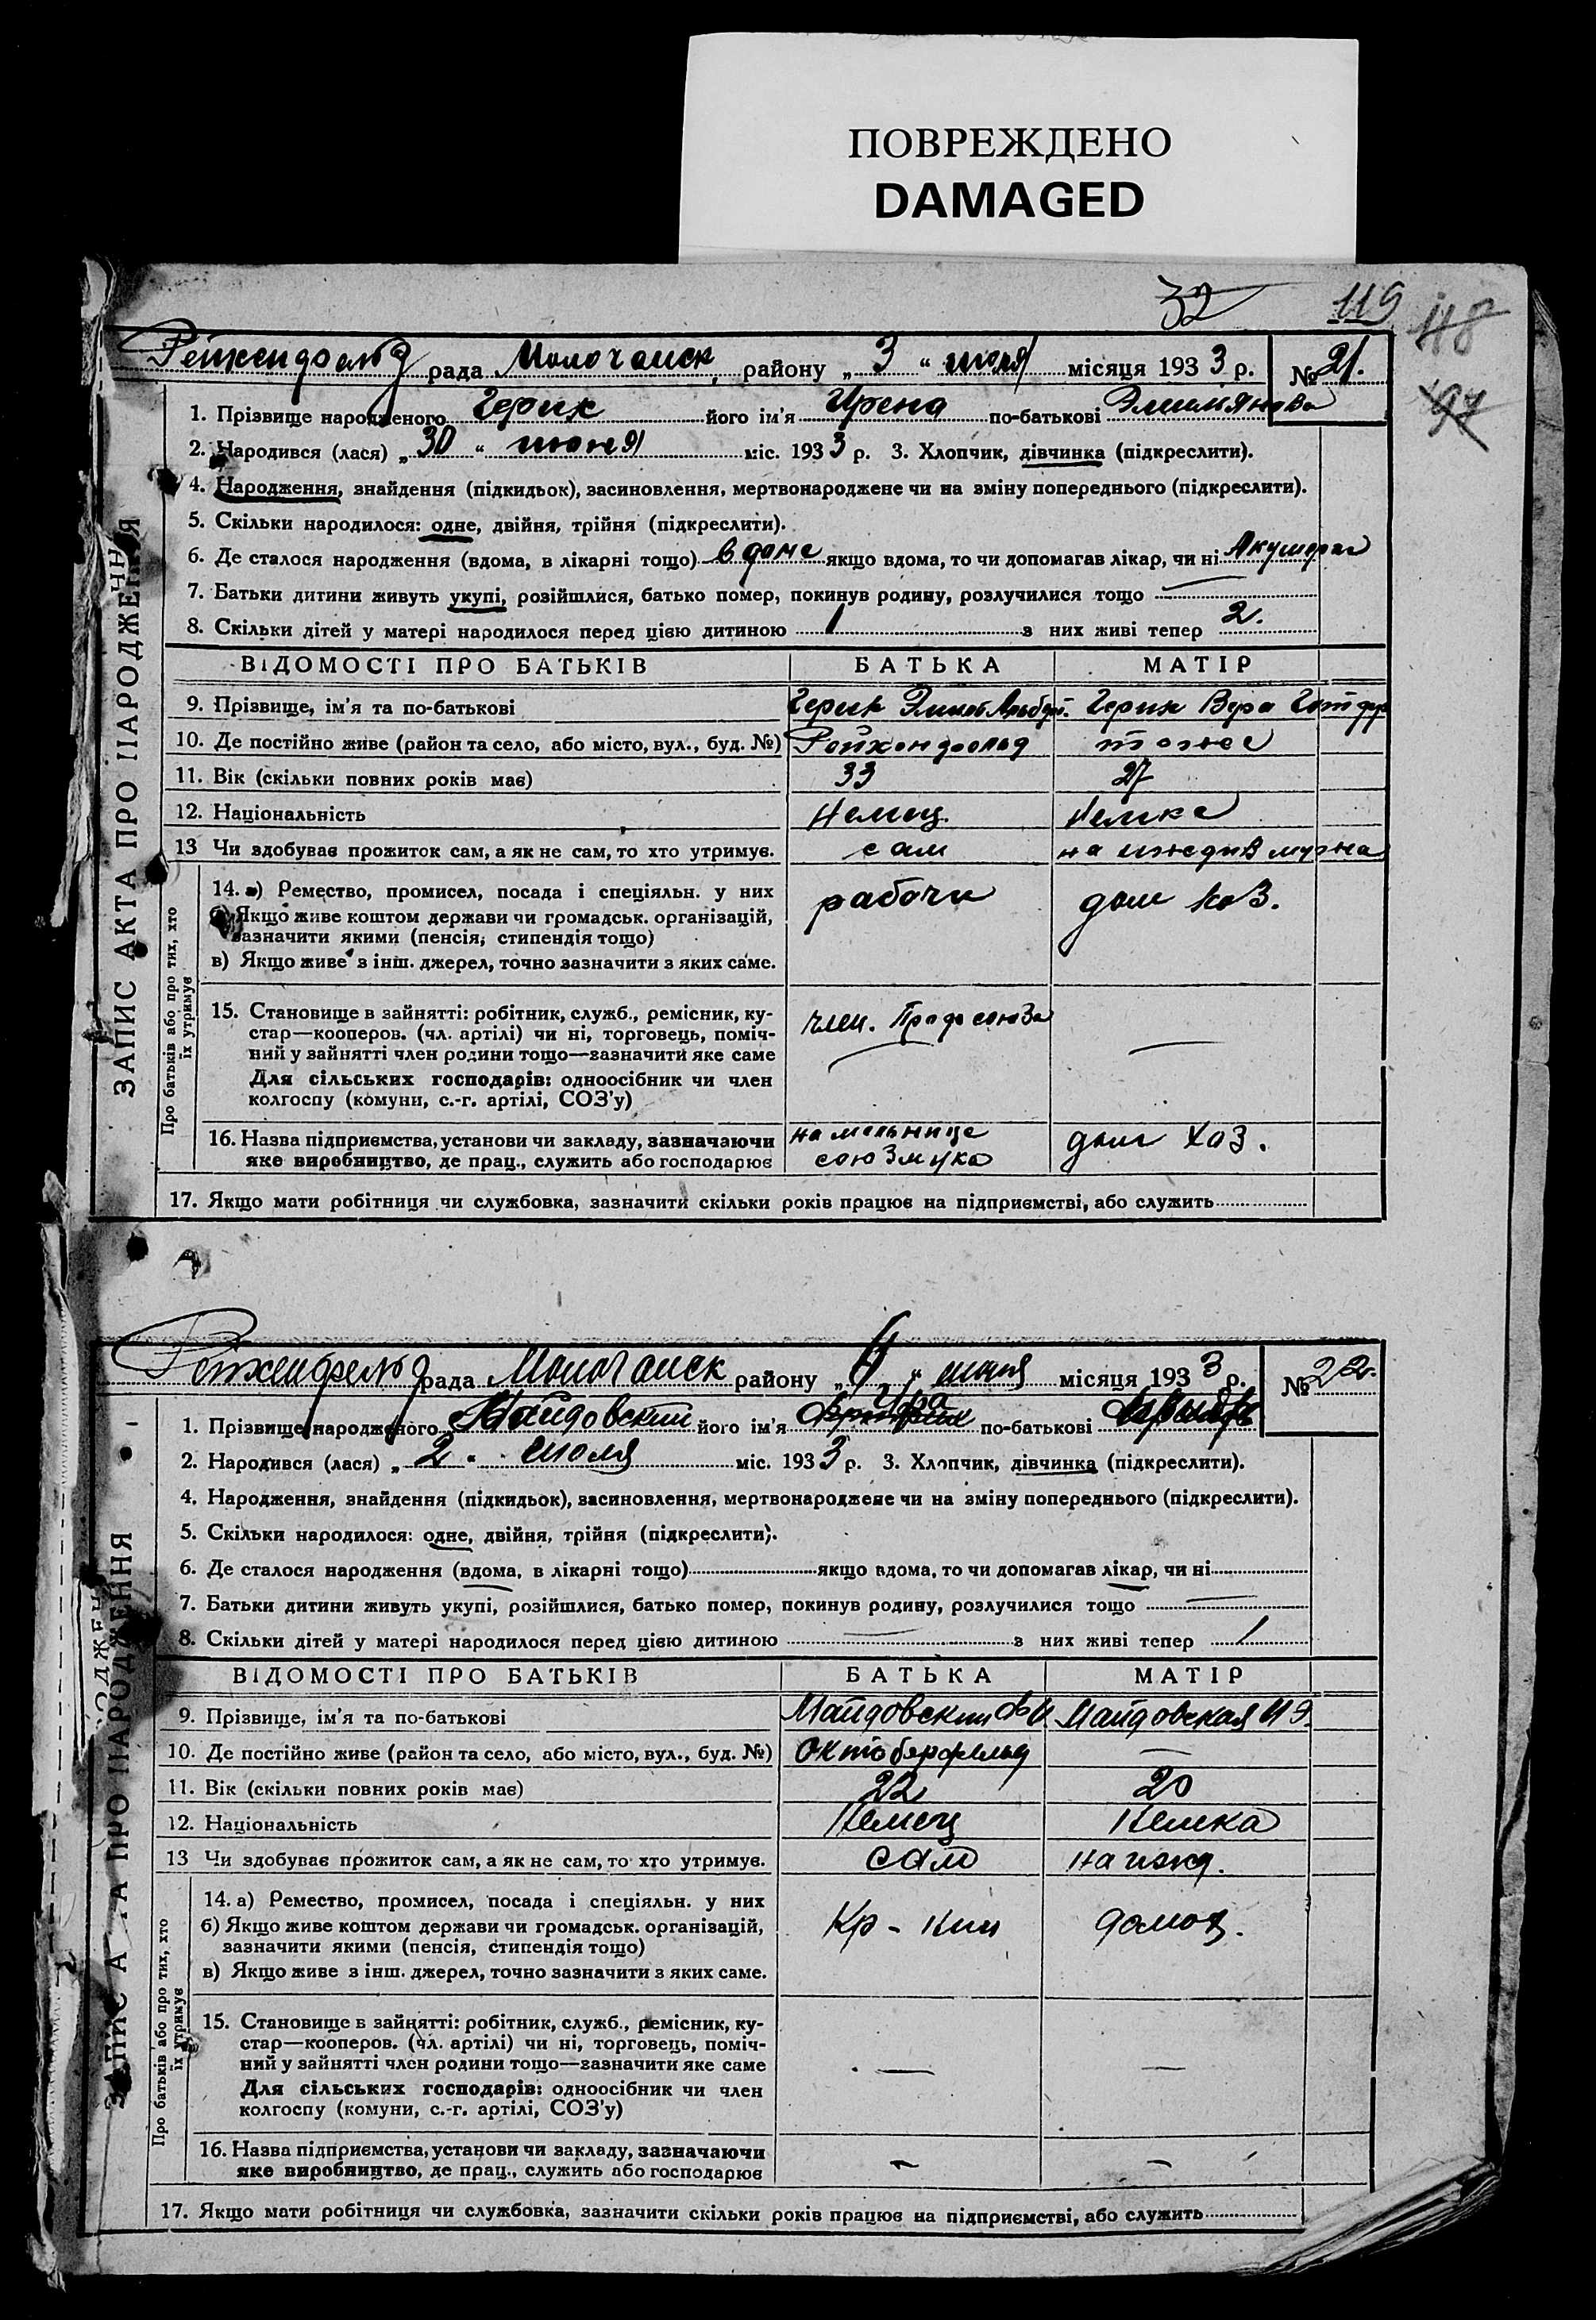 ПОВРЕЖДЕНО
DAMAGED
32 119 118
97
Рейхенфельд рада Молочанск району „3“ июля місяця 1933 р. № 21.
1. Прізвище народженого Герик його ім'я Ирена по-батькові
2. Народився (лася) „30“ июня міс. 1933 р. 3. Хлопчик, дівчинка (підкреслити).
4. Народження, знайдення (підкидьок), засиновлення, мертвонароджене чи на зміну попереднього (підкреслити).
5. Скільки народилося: одне, двійня, трійня (підкреслити).
6. Де сталося народження (вдома, в лікарні тощо) в доме якщо вдома, то чи допомагав лікар, чи ні
7. Батьки дитини живуть укупі, розійшлися, батько помер, покинув родину, розлучилися тощо —
8. Скільки дітей у матері народилося перед цією дитиною 1 з них живі тепер 2.
ВІДОМОСТІ ПРО БАТЬКІВ БАТЬКА МАТІР
9. Прізвище, ім'я та по-батькові Герик Герик Вера
10. Де постійно живе (район та село, або місто, вул., буд. №) Рейхенфельд тоже
11. Вік (скільки повних років має) 33 27
12. Національність Немец. Немка
13 Чи здобував прожиток сам, а як не сам, то хто утримує. сам на иждив мужа
14. а) Ремество, промисел, посада і спеціяльн. у них рабочи дом хоз.
б) Якщо живе коштом держави чи громадськ. організацій,
зазначити якими (пенсія, стипендія тощо)
в) Якщо живе з інш. джерел, точно зазначити з яких саме.
15. Становище в зайнятті: робітник, служб., ремісник, ку-
стар—кооперов. (чл. артілі) чи ні, торговець, поміч- член. Профсоюза —
ний у зайнятті член родини тощо—зазначити яке саме
Для сільських господарів: одноосібник чи член
колгоспу (комуни, с.-г. артілі, СОЗ'у)
16. Назва підприємства, установи чи закладу, зазначаючи на мельнице дом хоз.
яке виробництво, де прац., служить або господарює союзмука
17. Якщо мати робітниця чи службовка, зазначити скільки років працює на підприємстві, або служить
ЗАПИС АКТА ПРО НАРОДЖЕННЯ
Про батьків або про тих, хто
їх утримує
Рейхенфельд рада Молочанск району июля місяця 1933 р. № 22.
1. Прізвище народженого Майдовский його ім'я по-батькові
2. Народився (лася) „2“ июля міс. 1933 р. 3. Хлопчик, дівчинка (підкреслити).
4. Народження, знайдення (підкидьок), засиновлення, мертвонароджене чи на зміну попереднього (підкреслити).
5. Скільки народилося: одне, двійня, трійня (підкреслити).
6. Де сталося народження (вдома, в лікарні тощо) якщо вдома, то чи допомагав лікар, чи ні
7. Батьки дитини живуть укупі, розійшлися, батько помер, покинув родину, розлучилися тощо —
8. Скільки дітей у матері народилося перед цією дитиною — з них живі тепер 1
ВІДОМОСТІ ПРО БАТЬКІВ БАТЬКА МАТІР
9. Прізвище, ім'я та по-батькові Майдовский Майдовская И Э.
10. Де постійно живе (район та село, або місто, вул., буд. №) Октоберфельд —
11. Вік (скільки повних років має) 22 20
12. Національність Немец Немка
13 Чи здобував прожиток сам, а як не сам, то хто утримує. сам на ижд.
14. а) Ремество, промисел, посада і спеціяльн. у них
б) Якщо живе коштом держави чи громадськ. організацій, Кр-нин домоз.
зазначити якими (пенсія, стипендія тощо)
в) Якщо живе з інш. джерел, точно зазначити з яких саме.
15. Становище в зайнятті: робітник, служб., ремісник, ку-
стар—кооперов. (чл. артілі) чи ні, торговець, поміч-
ний у зайнятті член родини тощо—зазначити яке саме — —
Для сільських господарів: одноосібник чи член
колгоспу (комуни, с.-г. артілі, СОЗ'у)
16. Назва підприємства, установи чи закладу, зазначаючи
яке виробництво, де прац., служить або господарює — —
17. Якщо мати робітниця чи службовка, зазначити скільки років працює на підприємстві, або служить
ЗАПИС А ТА ПРО НАРОДЖЕННЯ
Про батьків або про тих, хто
їх утримує